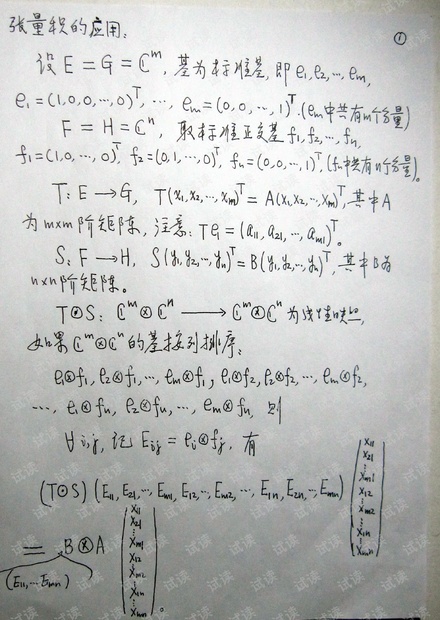 张量积的应用: ①
设 E = G = ℂᵐ, 基为标准基, 即 e₁, e₂, …, eₘ,
e₁ = (1,0,0,…,0)ᵀ, … eₘ = (0,0,…,1)ᵀ. (eₘ中共有m个分量)
F = H = ℂⁿ, 取标准正交基 f₁, f₂, …, fₙ,
f₁ = (1,0,…,0)ᵀ, f₂ = (0,1,…,0)ᵀ, fₙ = (0,0,…,1)ᵀ, (fₙ中共有n个分量).
T: E → G, T(x₁,x₂,…,xₘ)ᵀ = A(x₁,x₂,…,xₘ)ᵀ, 其中A
为m×m阶矩阵, 注意: Te₁ = (a₁₁, a₂₁, …, aₘ₁)ᵀ。
S: F → H, S(y₁,y₂,…,yₙ)ᵀ = B(y₁,y₂,…,yₙ)ᵀ, 其中B为
n×n阶矩阵。
T⊙S: ℂᵐ⊗ℂⁿ → ℂᵐ⊗ℂⁿ 为线性映照
如果 ℂᵐ⊗ℂⁿ 的基按列排序:
e₁⊗f₁, e₂⊗f₁, …, eₘ⊗f₁, e₁⊗f₂, e₂⊗f₂, …, eₘ⊗f₂,
…, e₁⊗fₙ, e₂⊗fₙ, …, eₘ⊗fₙ, 则
∀i,j, 记 Eᵢⱼ = eᵢ⊗fⱼ, 有
(T⊙S) (E₁₁, E₂₁, …, Eₘ₁, E₁₂, …, Eₘ₂, …, E₁ₙ, E₂ₙ, …, Eₘₙ) (x₁₁ x₂₁ ⋮ xₘ₁ x₁₂ ⋮ xₘ₂ ⋮ x₁ₙ ⋮ xₘₙ)
= B⊗A (x₁₁ x₂₁ ⋮ xₘ₁ x₁₂ ⋮ xₘ₂ ⋮ x₁ₙ ⋮ xₘₙ) 。
(E₁₁, … Eₘₙ)